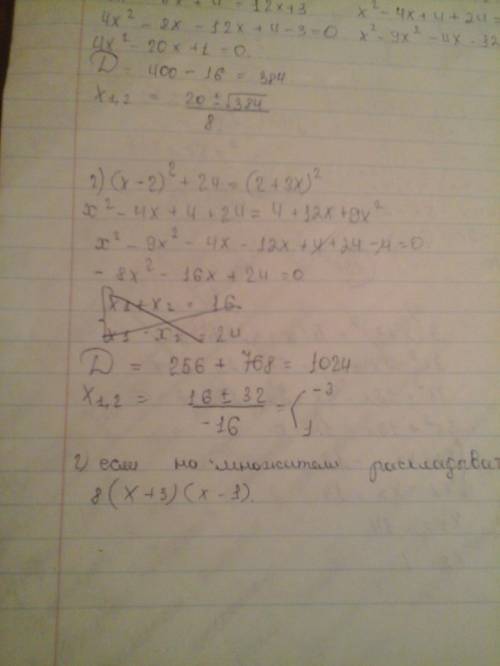 x + 4 = 12x + 3
x² - 4x + 4 + 24 =
4x² - 8x - 12x + 4 - 3 = 0
x² - 9x² - 4x - 12
4x² - 20x + 1 = 0.
D = 400 - 16 = 384
x₁,₂ = (20 ± √384) / 8
2) (x - 2)² + 24 = (2 + 3x)²
x² - 4x + 4 + 24 = 4 + 12x + 9x²
x² - 9x² - 4x - 12x + 4 + 24 - 4 = 0
- 8x² - 16x + 24 = 0
x₁ + x₂ = 16
x₁ · x₂ = 24
D = 256 + 768 = 1024
x₁,₂ = (16 ± 32) / -16 = < -3
1
если на множители раскладыват
8(x + 3)(x - 1).